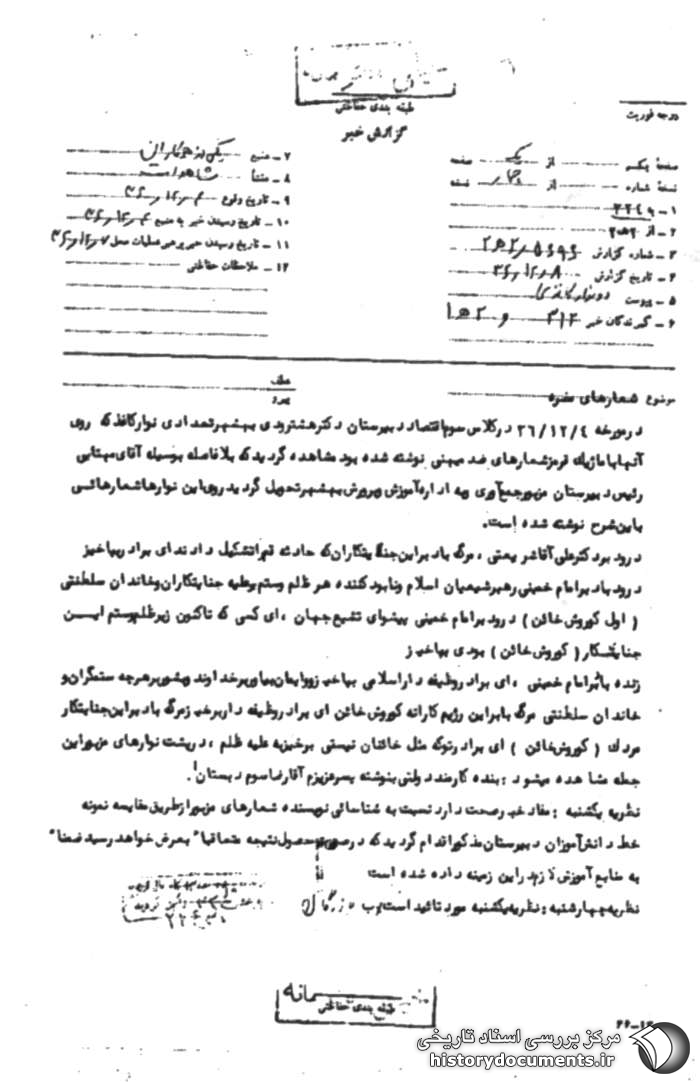 طبقه بندی حفاظتی
گزارش خبر
درجه فوریت
صفحه یک از یک صفحه
نسخه شماره از نسخه
۱ – به ۳۳۴
۲ – از ۲ ه‍ ۲
۳ – شماره گزارش
۴ – تاریخ گزارش ۳۶٫۱۲٫۸
۵ – پیوست
۶ – گیرندگان خبر ۳۱۲ و ۲ ه‍ ۱
۷ – منبع یکی از همکاران
۸ – منشأ
۹ – تاریخ وقوع ۳۶٫۱۲٫۴
۱۰ – تاریخ رسیدن خبر به منبع ۳۶٫۱۲٫۴
۱۱ – تاریخ رسیدن خبر برهبر عملیات محل ۳۶٫۱۲٫۷
۱۲ – ملاحظات حفاظتی
موضوع شعارهای مضره
عطف
پیرو
درمورخه ۳۶/۱۲/۴ درکلاس سوم اقتصاد دبیرستان دکتر هشترودی بهشهر تعدادی نوارکاغذ که روی
آنها با ماژیک قرمز شعارهای ضد میهنی نوشته شده بود مشاهده گردید که بلافاصله بوسیله آقای مهتابی
رئیس دبیرستان مزبور جمع آوری و به اداره آموزش و پرورش بهشهر تحویل گردید روی این نوارها شعارهائی
باین شرح نوشته شده است.
درود بر دکتر علی آقا شریعتی ، مرگ باد بر این جنایتکاران که حادثه قم را تشکیل دادند ای برادر بپاخیز
درود باد بر امام خمینی رهبر شیعیان اسلام و نابود کننده هر ظلم و ستم بر علیه جنایتکاران و خاندان سلطنتی
( اول کوروش خائن ) درود بر امام خمینی پیشوای تشیع جهان ، ای کسی که تاکنون زیر ظلم و ستم ایــن
جنایتکار ( کوروش خائن ) بودی بپاخیز
زنده باد امام خمینی ، ای برادر وظیفه دار اسلامی بپاخیز و ایمان بیاور بر خداوند و بشور بر هرچه ستمگران و
خاندان سلطنتی مرگ باد بر این رژیم کارانه کوروش خائن ای برادر وظیفه دار برخیز مرگ باد بر این جنایتکار
مردک ( کوروش خائن ) ای برادر توکه مثل خائنان نیستی برخیز به علیه ظلم ، درپشت نوارهای مزبور این
جمله مشاهده میشود : بنده کارمند دولتی بنوشته پسر عزیزم آقا رضا سوم دبستان .
نظریه یکشنبه : مفاد خبر صحت دارد نسبت به شناسائی نویسنده شعارهای مزبور از طریق مقایسه نمونه
خط دانش آموزان دبیرستان مذکور اقدام گردید که درصورت حصول نتیجه متعاقبا" بعرض خواهد رسید ضمنا"
به منابع آموزش لازم در این زمینه داده شده است
نظریه چهارشنبه : نظریه یکشنبه مورد تائید است
طبقه بندی حفاظتی
مرکز بررسی اسناد تاریخی
historydocuments.ir